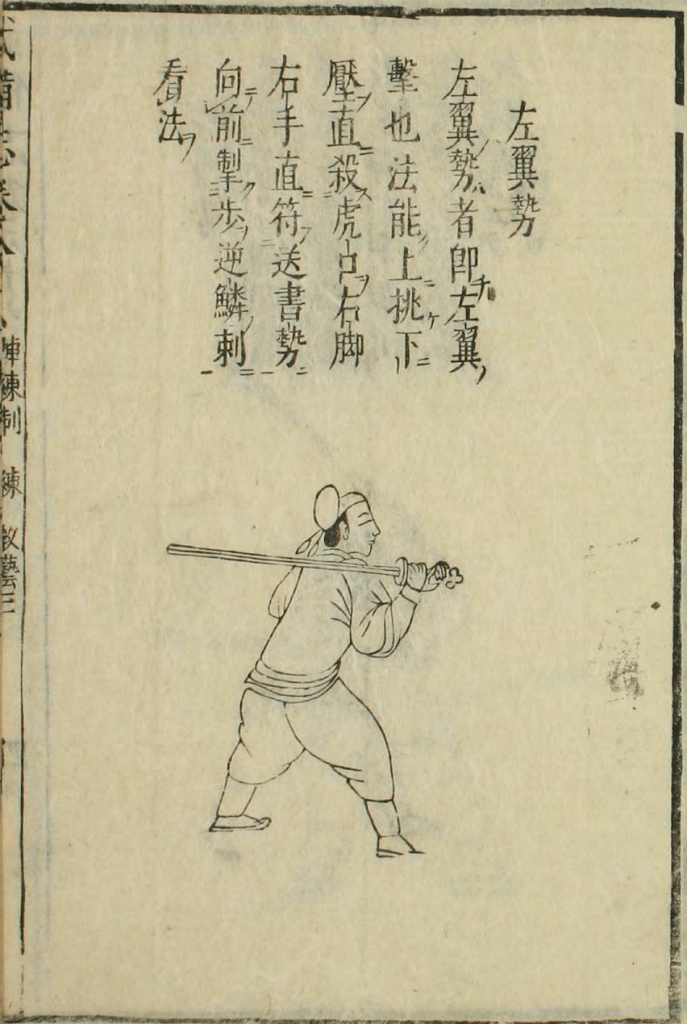 左翼勢
左翼勢者卽左翼
擊也法能上挑下
壓直殺虎口右脚
右手直符送書勢
向前掣步逆鱗刺
看法
陣練制 練 敎藝三